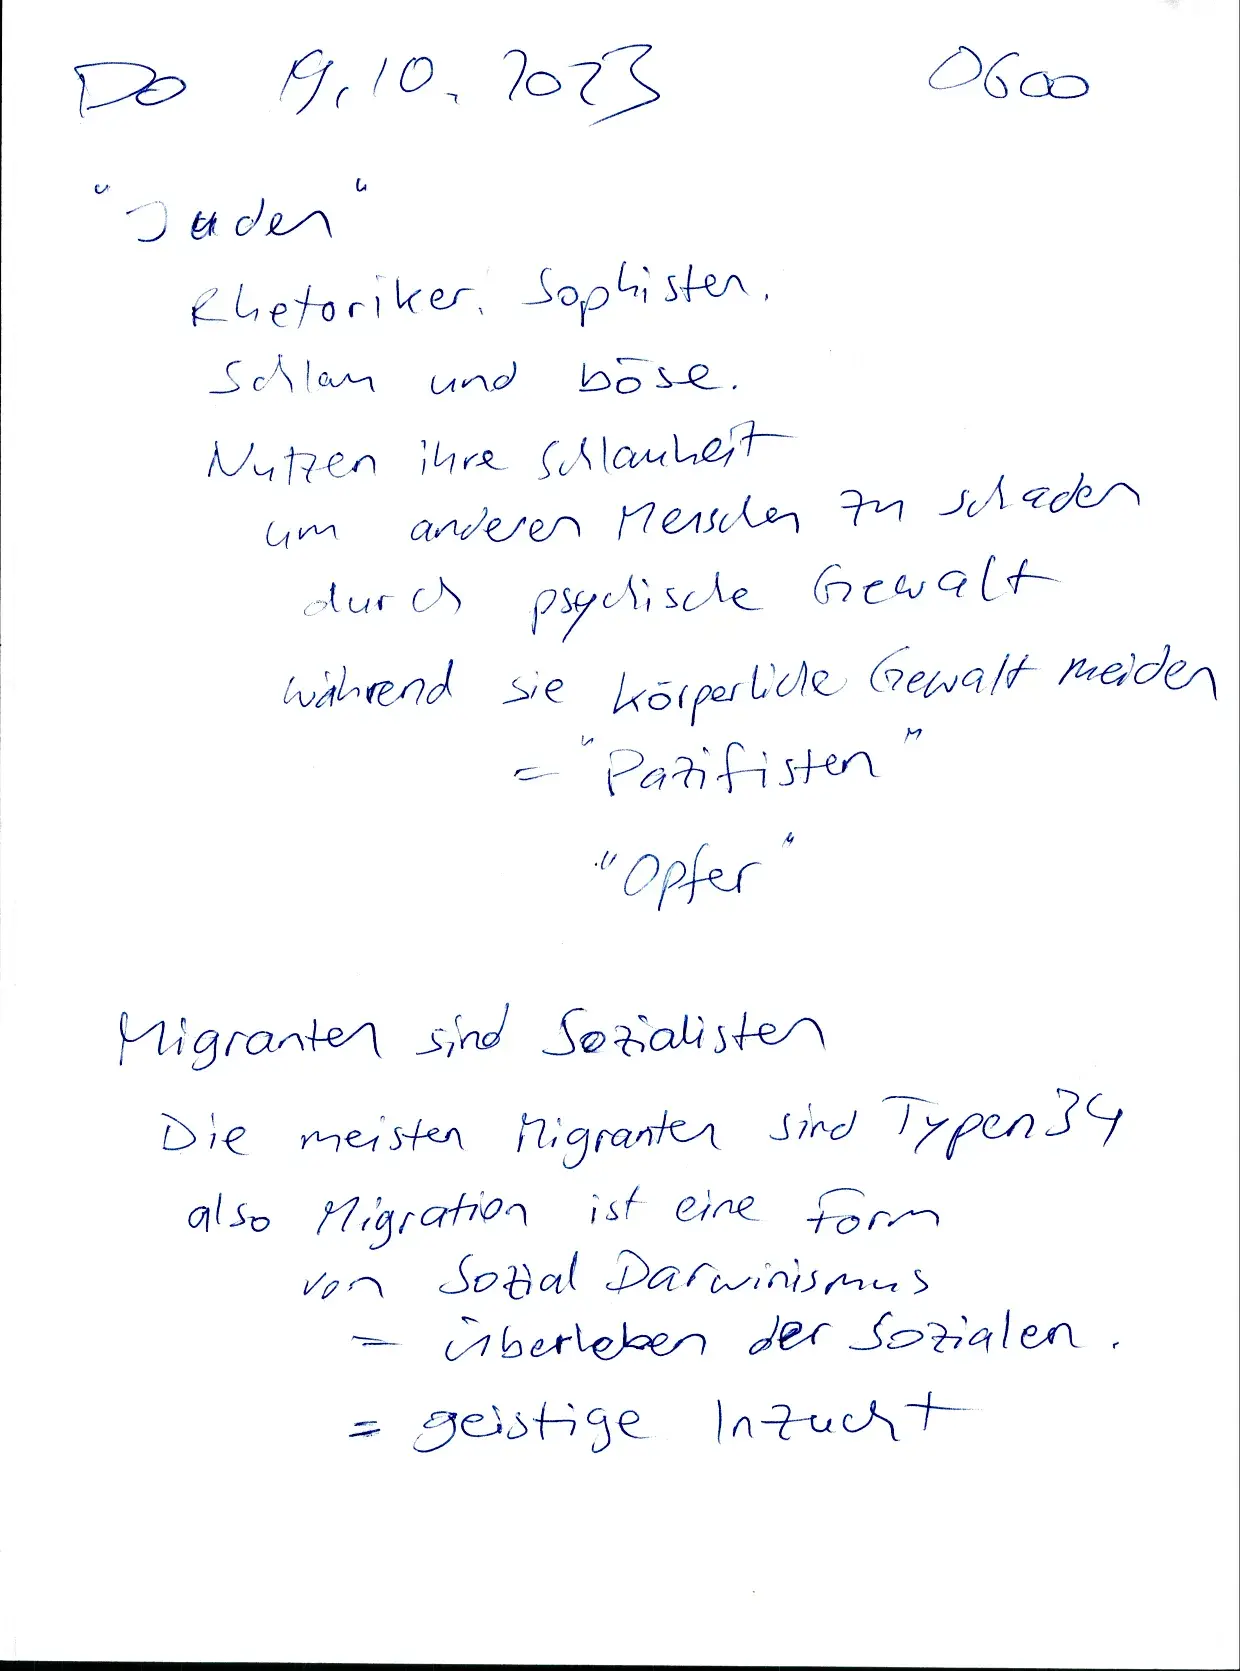 Do 19.10.2023 0600
"Juden"
Rhetoriker. Sophisten.
Schlau und böse.
Nutzen ihre Schlauheit
um anderen Menschen zu schaden
durch psychische Gewalt
während sie körperliche Gewalt meiden
= "Pazifisten"
"Opfer"
Migranten sind Sozialisten
Die meisten Migranten sind Typen 34
also Migration ist eine Form
von Sozial Darwinismus
= überleben der Sozialen.
= geistige Inzucht